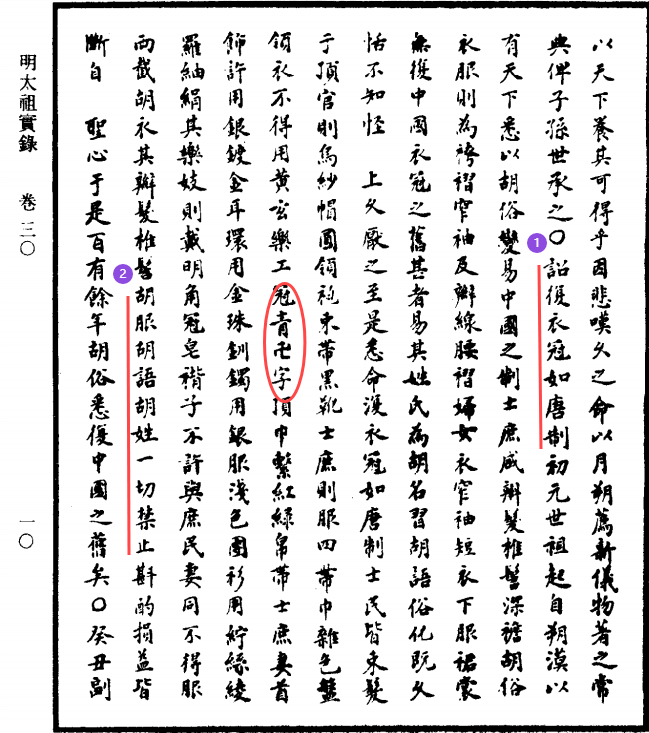 以天下養其可得乎因悲嘆久之命以月朔薦新儀物著之常
典俾子孫世承之○詔復衣冠如唐制初元世祖起自朔漠以
有天下悉以胡俗變易中國之制士庶咸辮髮椎髻深襜胡俗
衣服則為袴褶窄袖及辮線腰褶婦女衣窄袖短衣下服裙裳
無復中國衣冠之舊甚者易其姓氏為胡名習胡語俗化既久
恬不知怪 上久厭之至是悉命復衣冠如唐制士民皆束髮
于頂官則烏紗帽圓領袍束帶黑靴士庶則服四帶巾雜色盤
領衣不得用黃玄樂工冠青卍字頂巾繫紅綠帛帶士庶妻首
飾許用銀鍍金耳環用金珠釧鐲用銀服淺色團衫用紵絲綾
羅紬絹其樂妓則戴明角冠皂褙子不許與庶民妻同不得服
兩截胡衣其辮髮椎髻胡服胡語胡姓一切禁止斟酌損益皆
斷自 聖心于是百有餘年胡俗悉復中國之舊矣○癸丑副
明太祖實錄 卷三〇 一〇
1
2